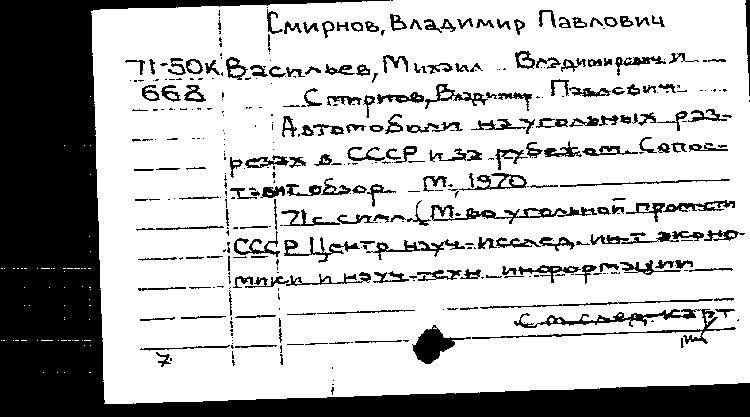 Смирнов, Владимир Павлович
71-50К Васильев, Михаил Владимирович и
668 Смирнов, Владимир Павлович.
Автомобили на угольных раз-
резах в СССР и за рубежом. Сопос-
тавит. обзор. М., 1970
71 с с илл. (М-во угольной пром-сти
СССР Центр науч.-исслед. ин-т эконо-
мики и науч.-техн. информации
См. след. карт.
7